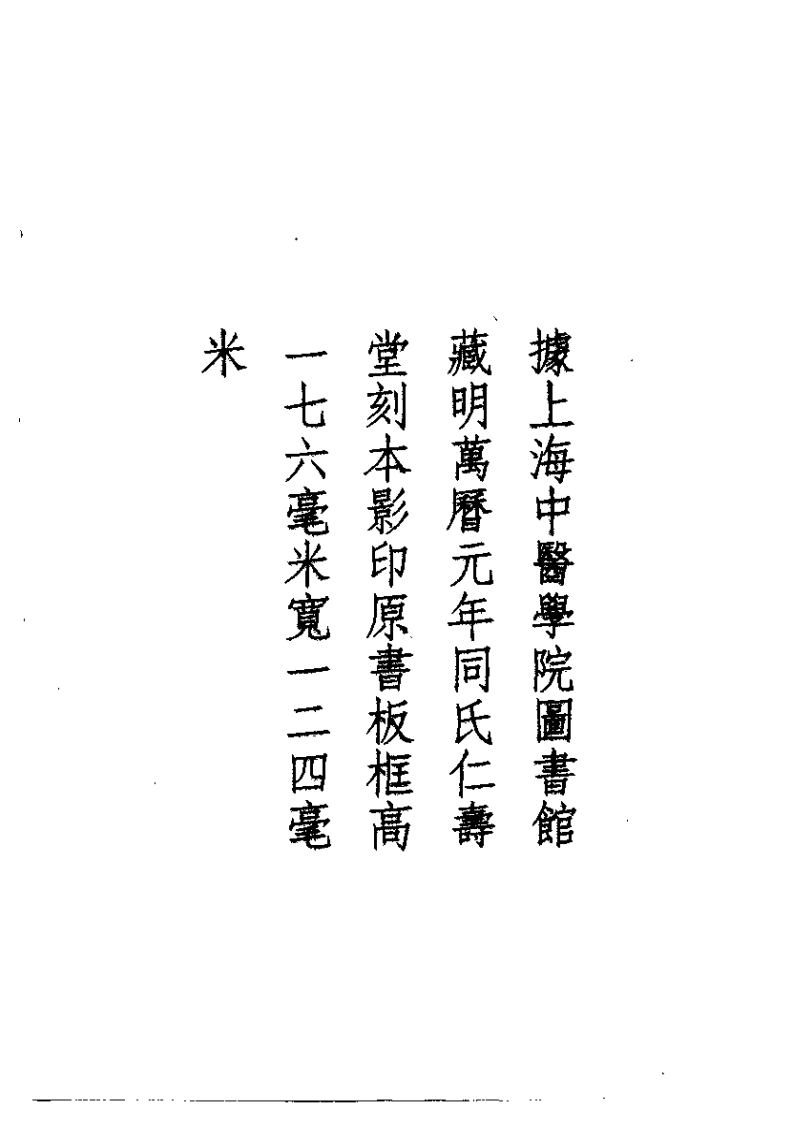 據上海中醫學院圖書館
藏明萬曆元年同氏仁壽
堂刻本影印原書板框高
一七六毫米寬一二四毫
米